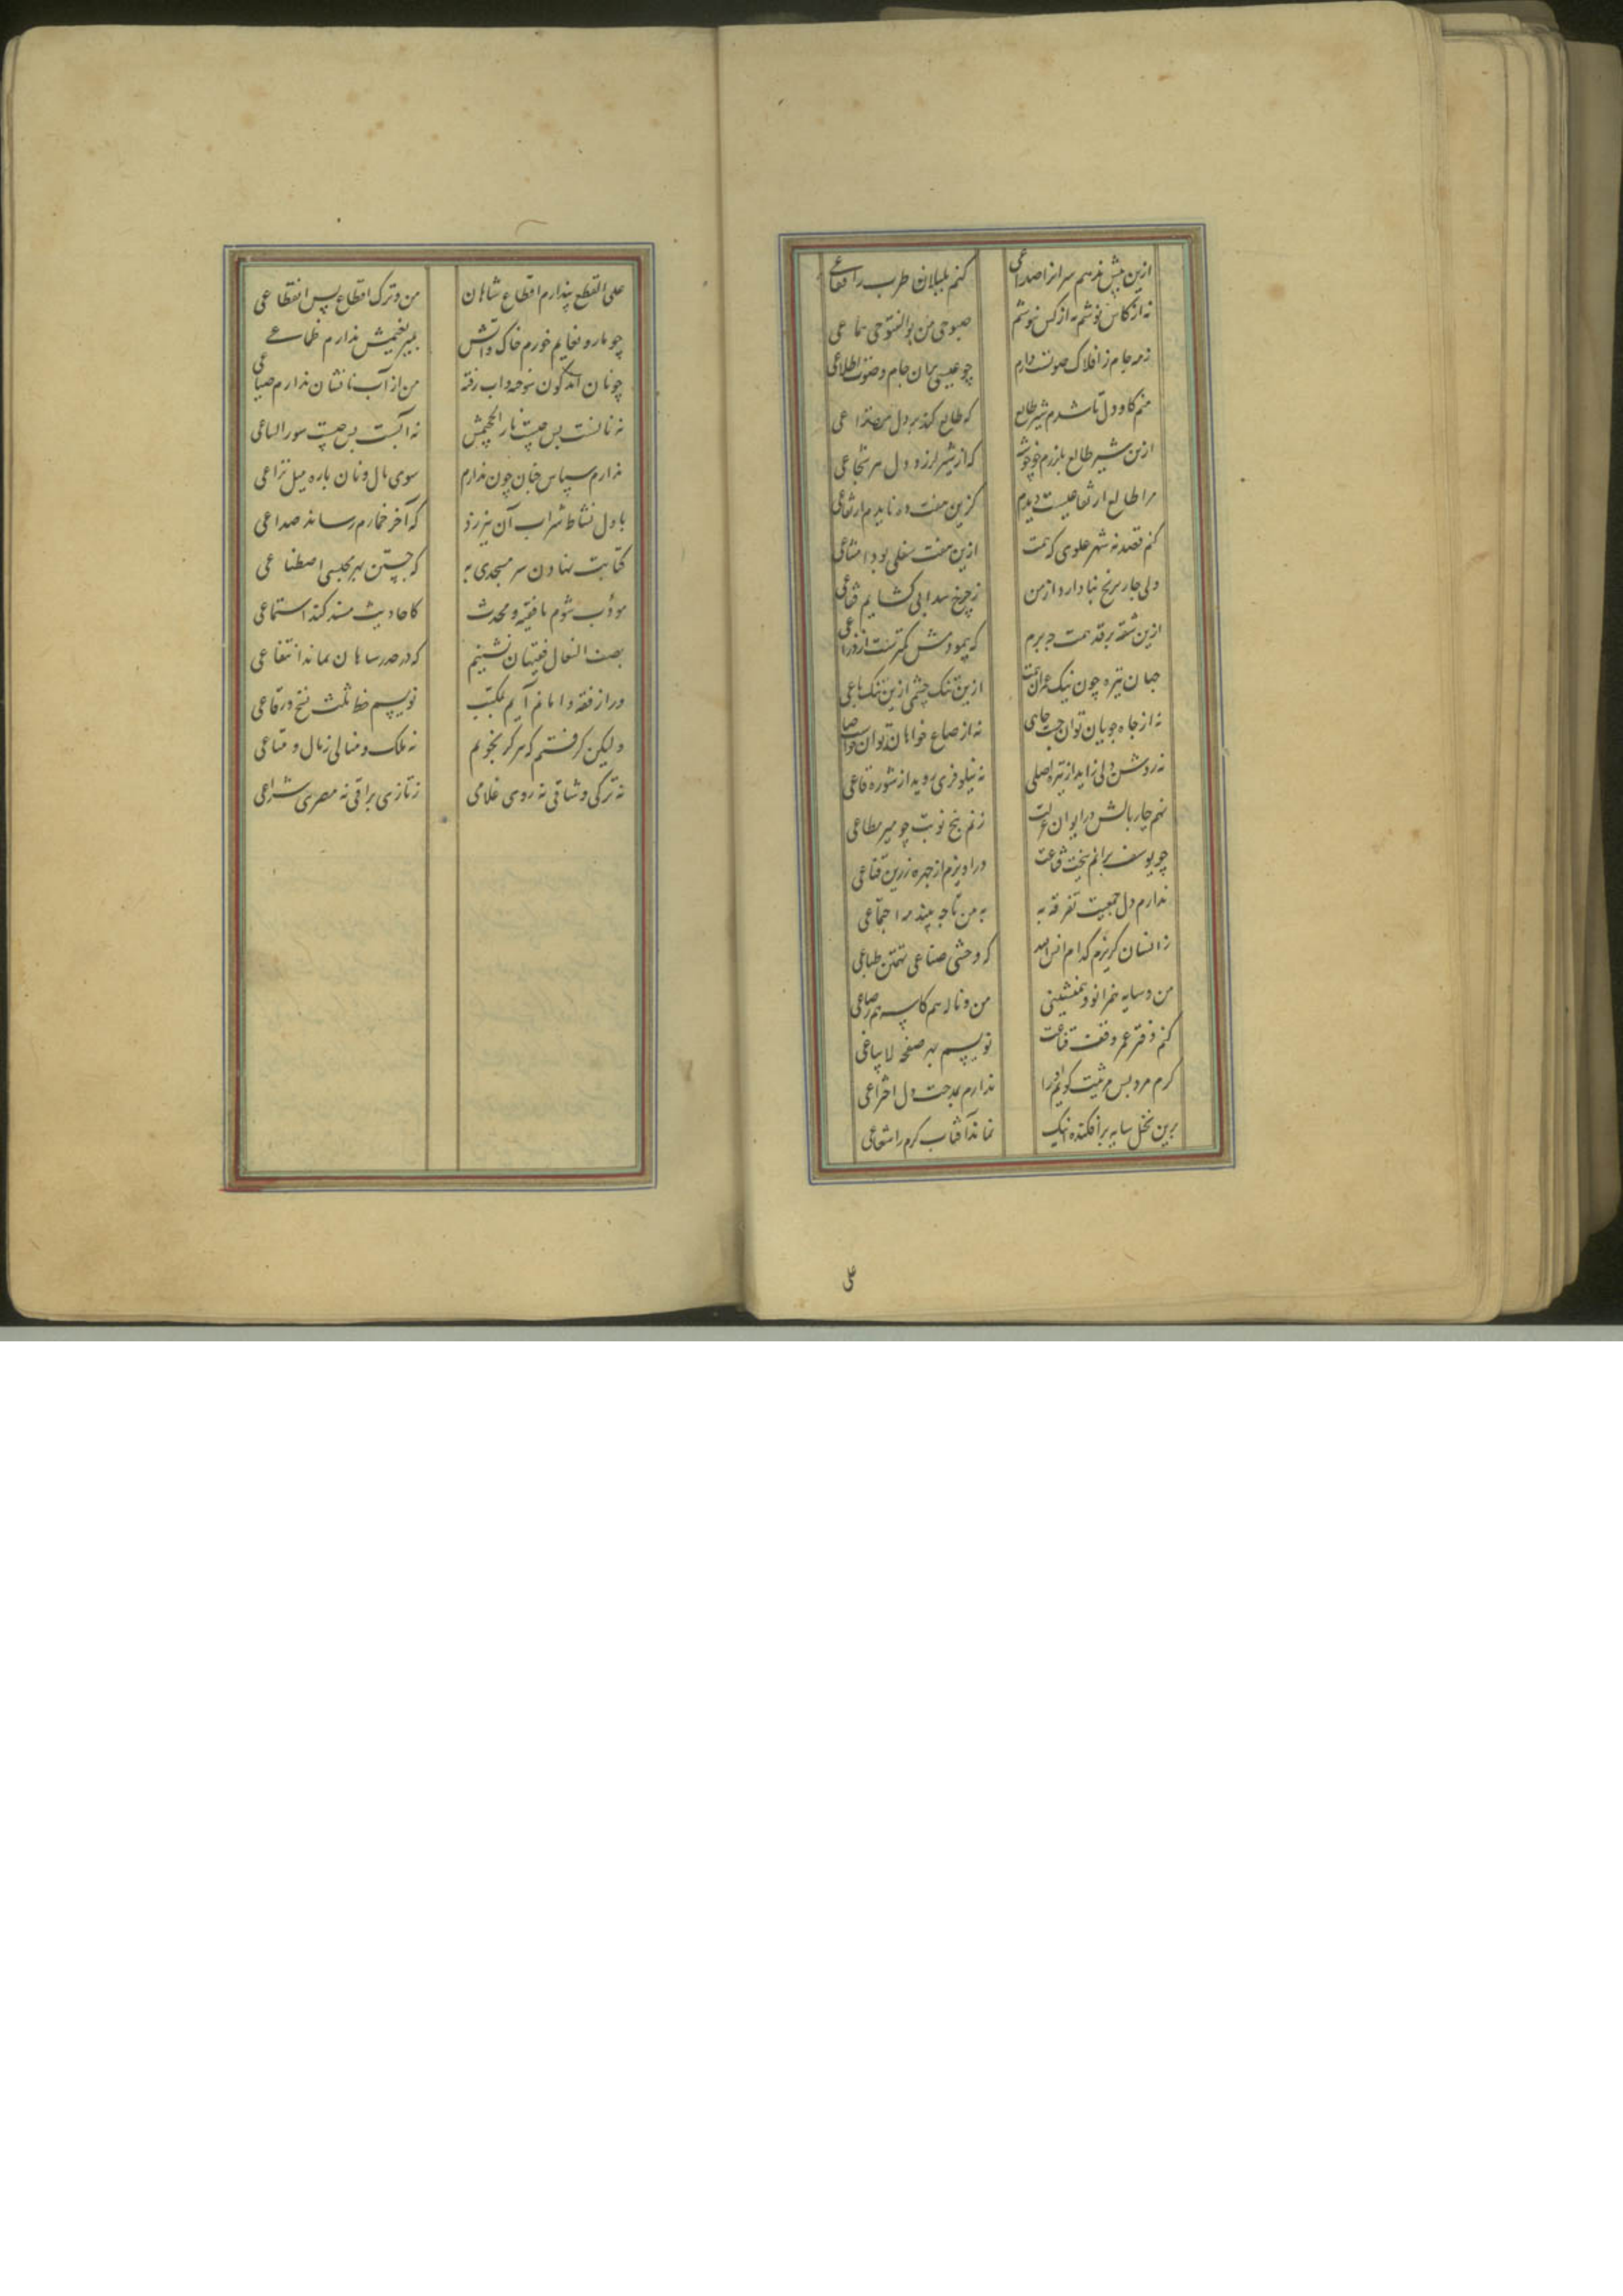 ازین بیش ندهم سرانرا صداعی
کنم بلبلان طرب را قفاعی
نه از کاس نوشم نه از کس نیوشم
صبوحی من بوالفتوحی سماعی
نه مه جام ز افلاک صوت دارم
چو عیسی بران جام و صوت اطلاعی
منم کاو دل تا شدم شیر طالع
که طالع کند بر دل من نزاعی
ازین شیر طالع بلرزم چو خوشه
که از شیر لرزد دل هر شجاعی
مرا طالع ارتفاعیست دیدم
کزین هفت ده ناید ارتفاعی
کنم قصد نه شهر علوی که همت
ازین هفت سفلی بود امتناعی
ولی چار برج نبا دارد از من
ز چرخ سدابی کشایم فقاعی
ازین شقه بر قد همت چه برم
که پیمودمش کمترست از ذراعی
جهان تیره چون نیک عرانست
ازین تنک چشمی ازین تنک باعی
نه از جاه جویان توان جست جاهی
نه از صاع خواهان توان خواست صاعی
نه روشن دلی زاید از تیره اصلی
نه نیلوفری روید از شوره قاعی
نهم چار بالش در ایوان عزلت
زنم پنج نوبت چو میر مطاعی
چو یوسف برانم بتخت قناعت
در آویزم از چهره زرین قناعی
ندارم دل جمعیت تفرقه به
به من تا چه بیند مه اجتماعی
ز انسان گریزم کدام انس ایمه
که وحشی صناعی بهیمن طباعی
من و سایه همزانو و همنشینی
من و ناله هم کاسه هم رضاعی
کنم دفتر عمر وقف قناعت
نویسم بهر صفحه لایباعی
کرم مرد پس مرثیت گویم او را
ندارم بمدحت دل اختراعی
برین نخل سایه برافکنده اینک
نماند آفتاب کرم را شعاعی
علی
علی القطع پندارم اقطاع شاهان
من و ترک اقطاع پس انقطاعی
چو مار و نعایم خورم خاک و آتش
بمیر نعیمش ندارم طماعی
چو نان اندکون نوحه و آب رفته
من از آب نانشان ندارم ضیاعی
نه نانست بس چیست نار الجحیمش
نه آبست بس چیست سور السباعی
ندارم سپاس خسان چون ندارم
سوی مال و نان باره میل نزاعی
باول نشاط شراب آن نیرزد
که آخر خمارم رساند صداعی
کتابت نهادن سر مسجدی به
که جستن بهر مجلسی اصطناعی
مؤدب شوم یا فقیه و محدث
کاحادیث مسند کند استماعی
بصف النعال فقیهان نشینم
که در صدر شاهان نماند انتفاعی
ور از فقه واماندم آیم بمکتب
نویسم خط ثلث نسخ و رقاعی
ولیکن گرفتم که هرگز نجویم
نه ملک و منالی نه مال و متاعی
نه ترکی وشاقی نه رومی غلامی
نه تازی براقی نه مصری شراعی